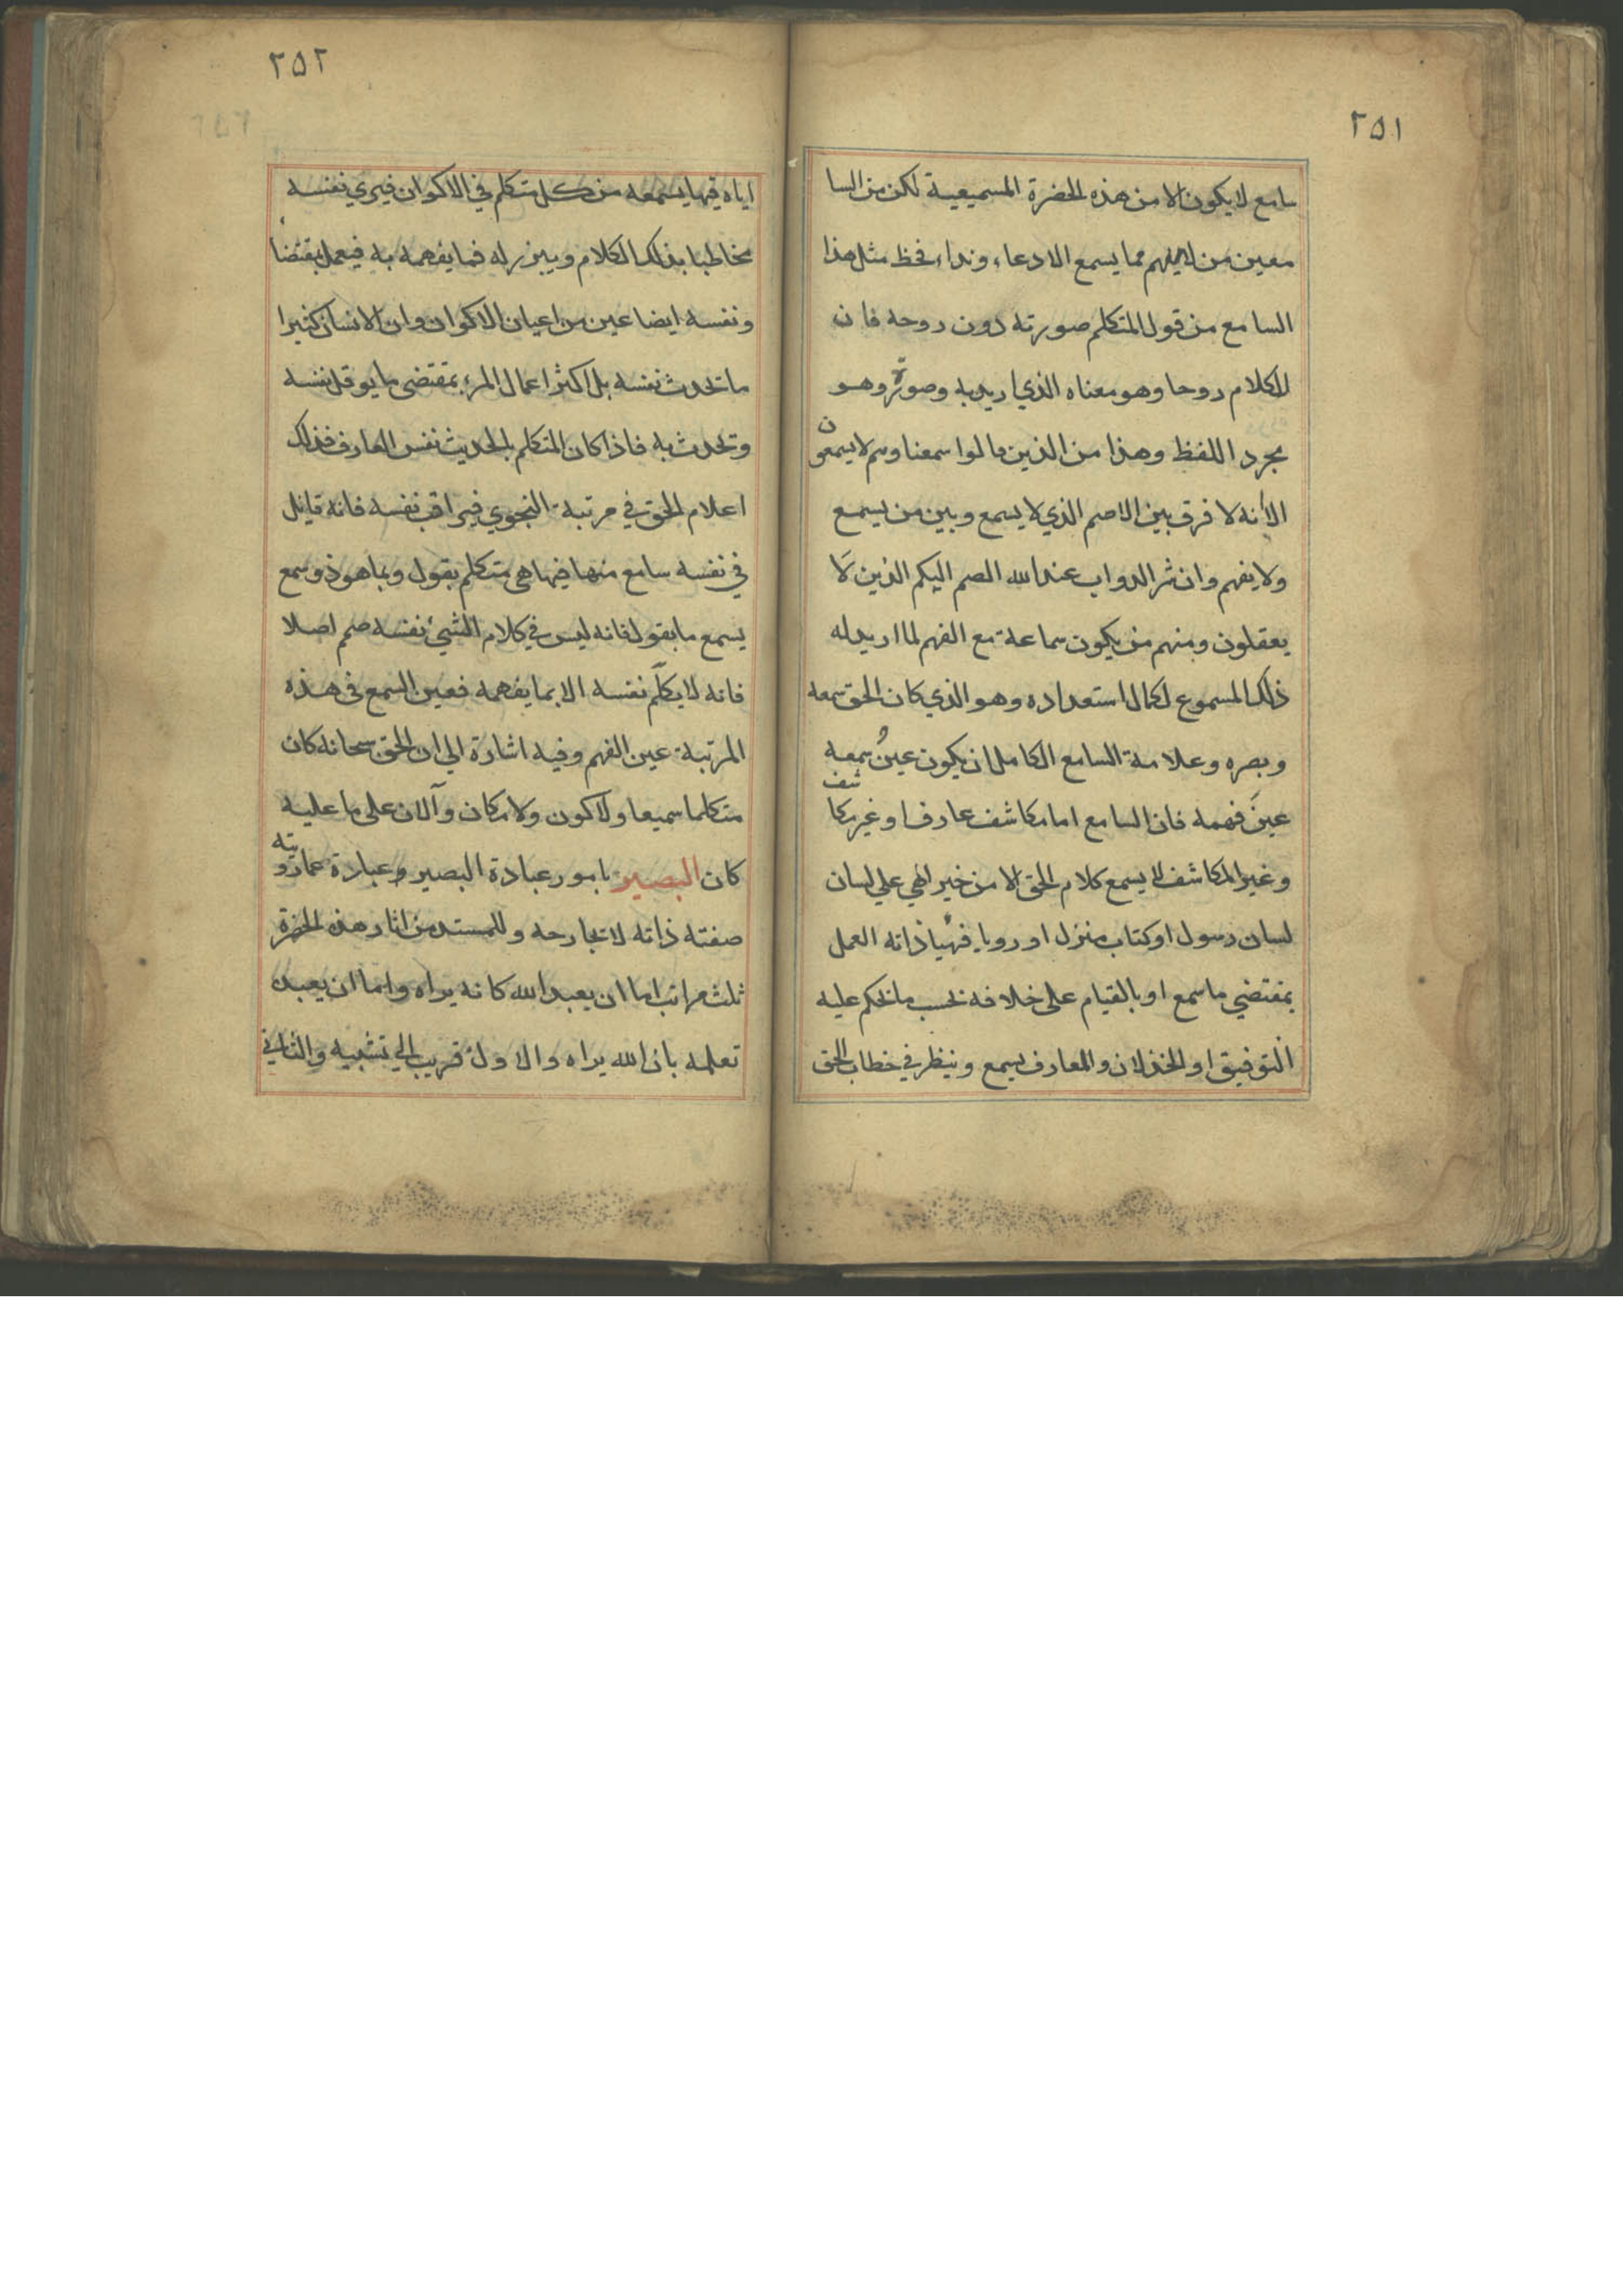 ٢٥١
سامع لا يكون الا من هذه الحضرة المسميعية لكن من السا
معين من لا يفهم مما يسمع الا دعاء ونداء فحظ مثل هذا
السامع من قول المتكلم صورته دون روحه فان
للكلام روحا وهو معناه الذي اريد به وصورة وهو
مجرد اللفظ وهذا من الذين قالوا سمعنا وهم لا يسمعون
الأنه لا فرق بين الاصم الذي لا يسمع وبين من يسمع
ولا يفهم وان شر الدواب عند الله الصم البكم الذين لا
يعقلون ومنهم من يكون سماعة مع الفهم لما اريد له
ذلك المسموع لكمال استعداده وهو الذي كان الحق سمعه
وبصره وعلامة السامع الكامل ان يكون عينُ سمعه
عينَ فهمه فان السامع اما مكاشف عارف او غير مكاشف
وغير المكاشف لا يسمع كلام الحق الا من خبر الهي علي لسان
لسان رسول او كتاب منزل او رويا فهيا ذاته العمل
بمقتضي ما سمع او بالقيام على خلافه بحسب ما يحكم عليه
التوفيق او الخذلان والعارف يسمع وينظر في خطاب الحق
٢٥٢
اياه فيما يسمعه من كل متكلم في الاكوان فيري نفسه
مخاطبا بذلك الكلام ويبرز له فما يفهمه به فيعمل بمقتضا
ونفسه ايضا عين من اعيان الاكوان وان الانسان كثيرا
ما تحدث نفسه بل اكثر اعمال المرء بمقتضى ما يوقل نفسه
وتحدث به فاذا كان المتكلم بالحديث نفس العارف فذلك
اعلام الحق في مرتبة النجوي فيراقب نفسه فانه قايل
في نفسه سامع منها فيما هى متكلم بقول وبما هو ذو سمع
يسمع ما يقول فانه ليس في كلام الشيئ نفسه صم اصلا
فانه لا يكلّم نفسه الا بما يفهمه فعين السمع في هذه
المرتبة عين الفهم وفيه اشارة الي ان الحق سبحانه كان
متكلما سميعا ولا كون ولا مكان وآلان على ما عليه
كان البصير بامور عبادة البصير وعبادة عما رؤيته
صفته ذاته لا بجارحه وللمستمد من اثار هذه الحضرة
ثلث مراتب اما ان يعبد الله كانه يراه واما ان يعبده
تعلمه بان الله يراه والاول قريب الي تشبيه والثاني